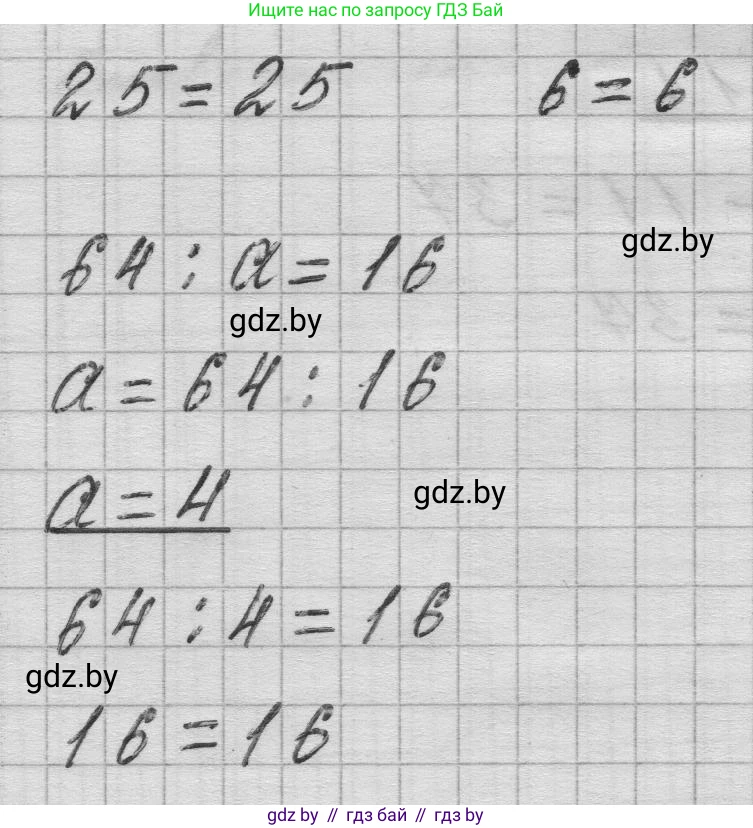 Ищите нас по запросу ГДЗ Бай
25 = 25 6 = 6
64 : a = 16
gdz.by
gdz.by
a = 64 : 16
a = 4
gdz.by
64 : 4 = 16
gdz.by
16 = 16
gdz by // гдз бай // gdz by